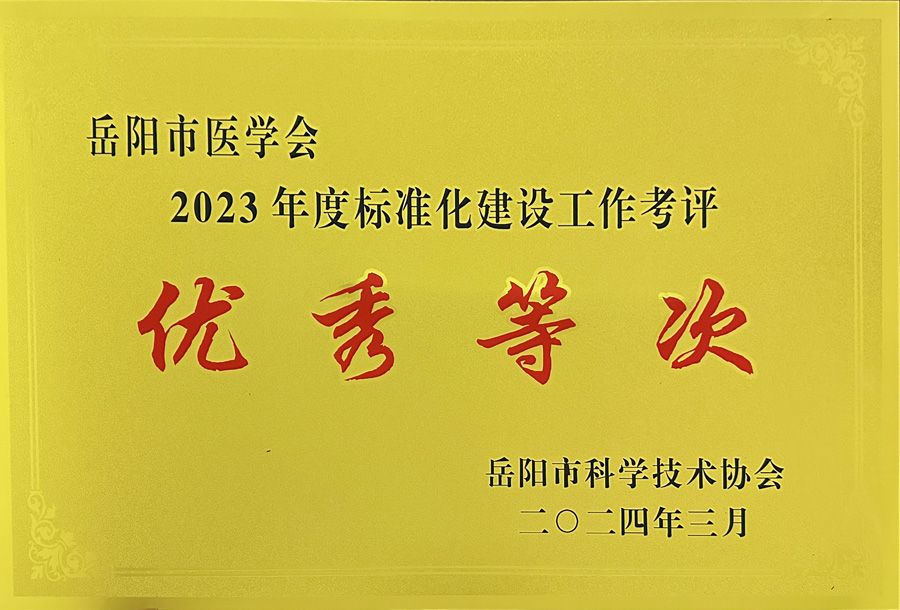 岳阳市医学会
2023年度标准化建设工作考评
优秀等次
岳阳市科学技术协会
二〇二四年三月